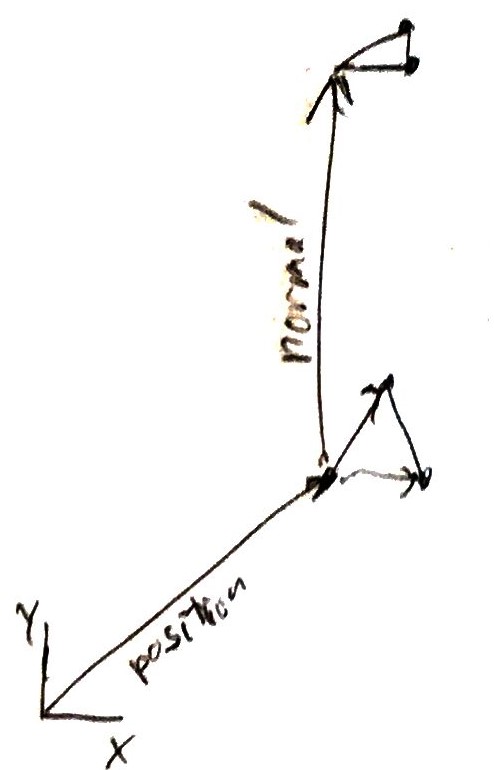 normal
position
Y
X